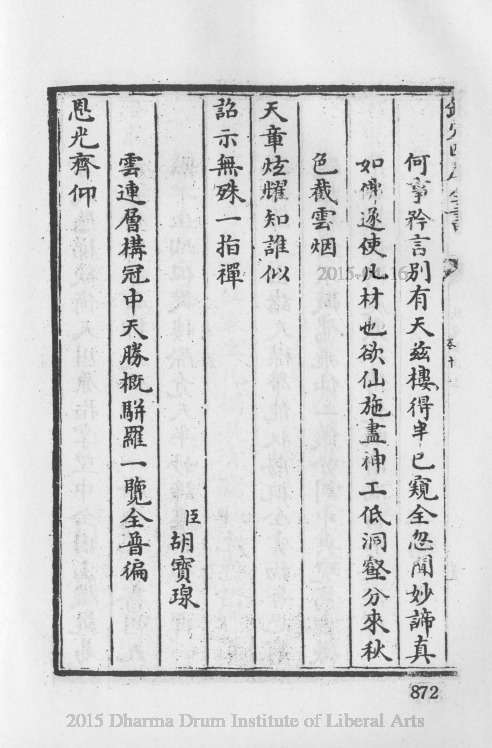 欽定四庫全書
何事矜言別有天茲樓得半已窺全忽聞妙諦真
如傳遂使凡材也欲仙施盡神工低洞壑分來秋
色截雲烟
天章炫耀知誰似
詔示無殊一指禪
臣胡寶瑔
雲連層構冠中天勝概駢羅一覽全普徧
恩光齊仰
872
2015 Dharma Drum Institute of Liberal Arts